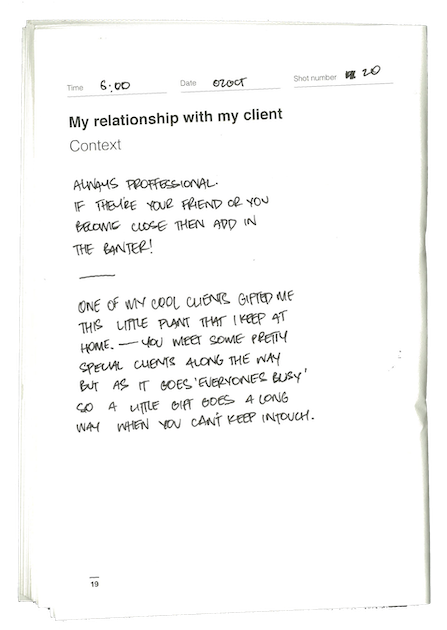 Time 6:00 Date 02OCT Shot number 20
My relationship with my client
Context
ALWAYS PROFFESSIONAL.
IF THEY'RE YOUR FRIEND OR YOU
BECOME CLOSE THEN ADD IN
THE BANTER!
ONE OF MY COOL CLIENTS GIFTED ME
THIS LITTLE PLANT THAT I KEEP AT
HOME. — YOU MEET SOME PRETTY
SPECIAL CLIENTS ALONG THE WAY
BUT AS IT GOES 'EVERYONES BUSY'
SO A LITTLE GIFT GOES A LONG
WAY WHEN YOU CAN'T KEEP INTOUCH.
19